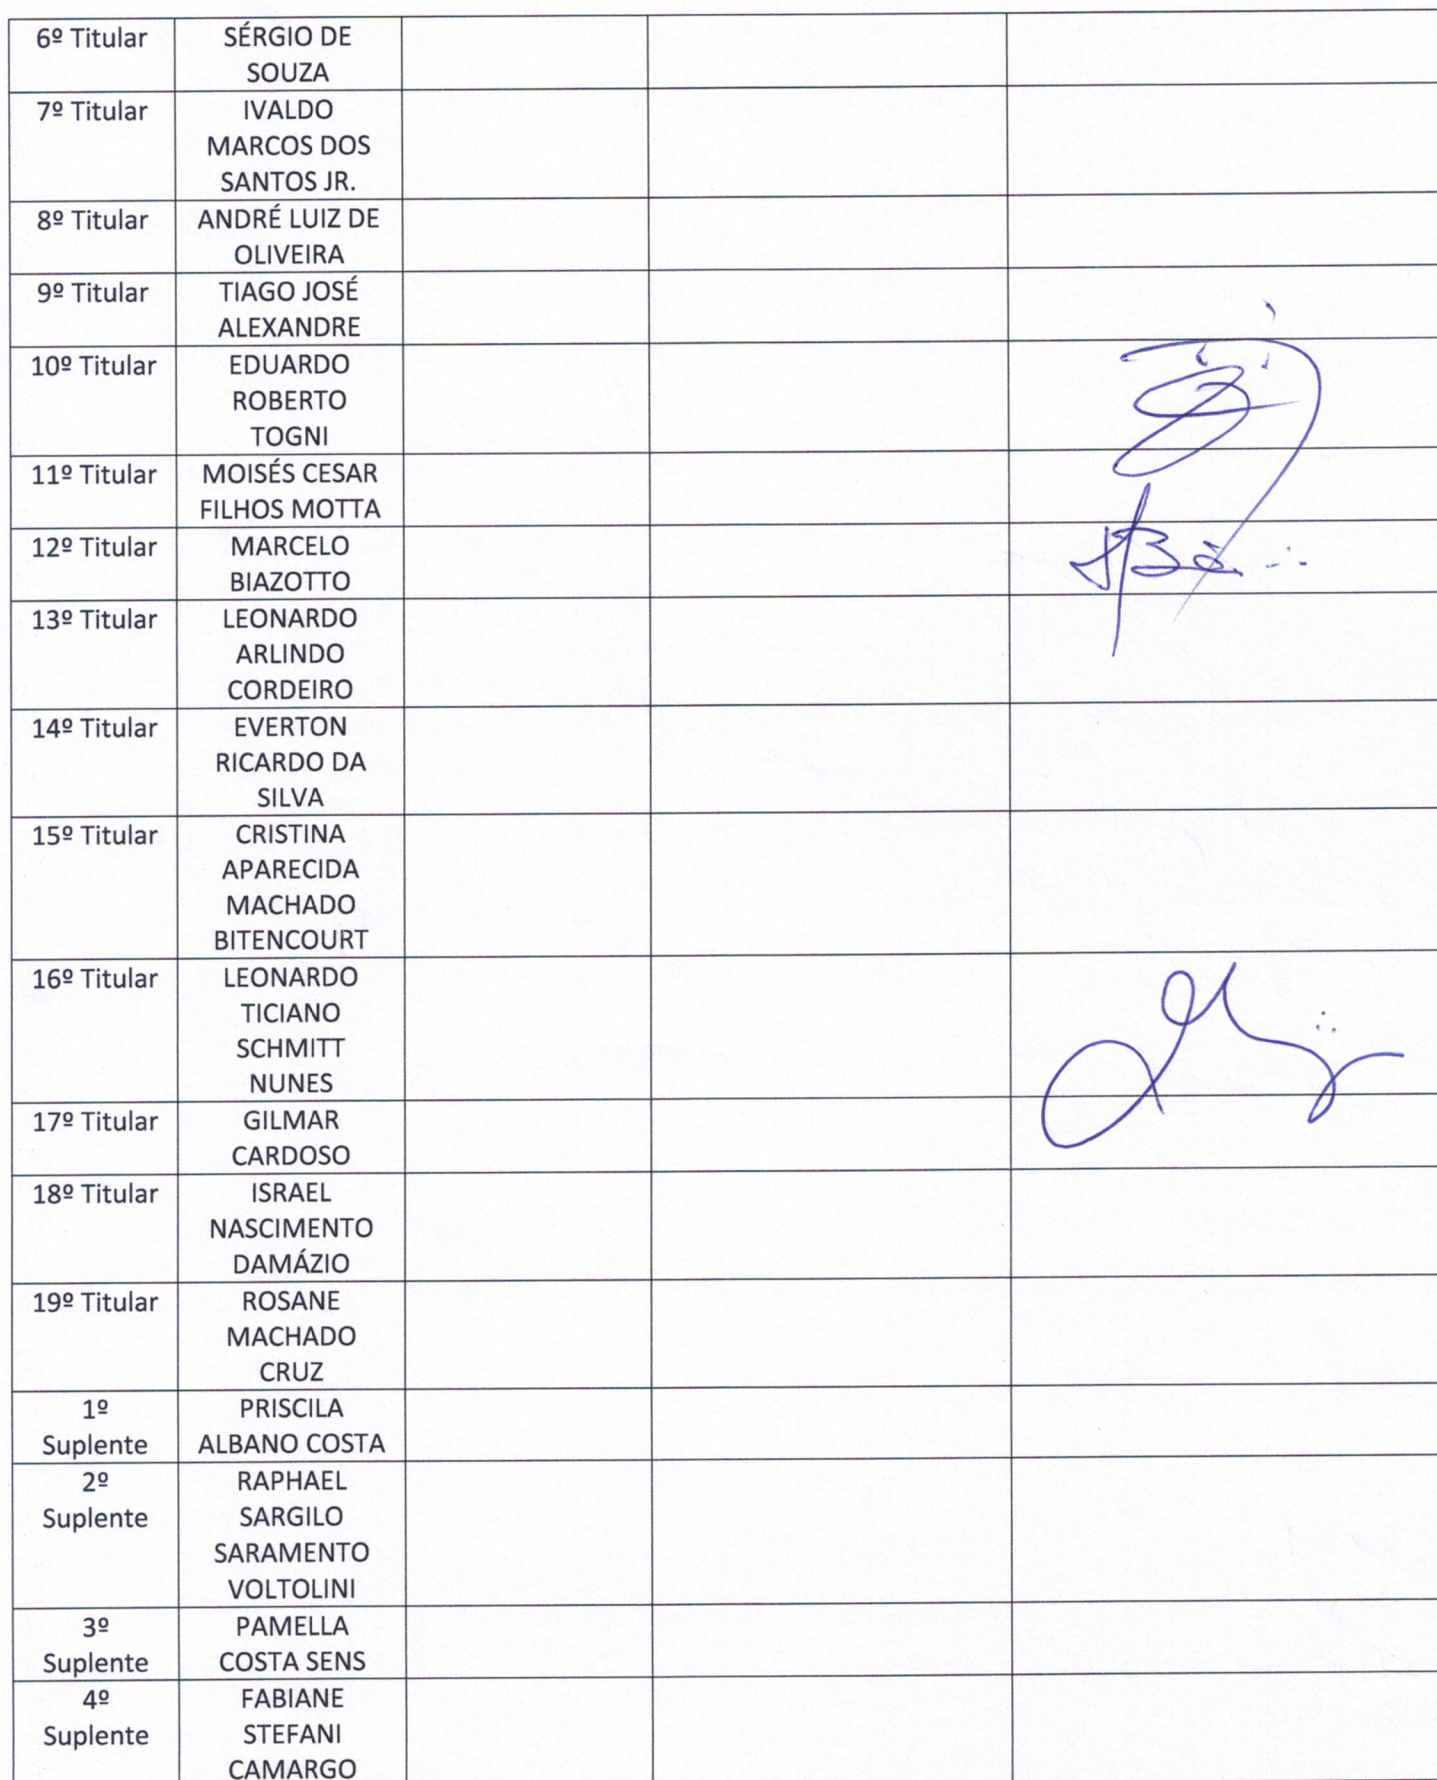 6º Titular SÉRGIO DE
SOUZA
7º Titular IVALDO
MARCOS DOS
SANTOS JR.
8º Titular ANDRÉ LUIZ DE
OLIVEIRA
9º Titular TIAGO JOSÉ
ALEXANDRE
10º Titular EDUARDO
ROBERTO
TOGNI
11º Titular MOISÉS CESAR
FILHOS MOTTA
12º Titular MARCELO
BIAZOTTO
13º Titular LEONARDO
ARLINDO
CORDEIRO
14º Titular EVERTON
RICARDO DA
SILVA
15º Titular CRISTINA
APARECIDA
MACHADO
BITENCOURT
16º Titular LEONARDO
TICIANO
SCHMITT
NUNES
17º Titular GILMAR
CARDOSO
18º Titular ISRAEL
NASCIMENTO
DAMÁZIO
19º Titular ROSANE
MACHADO
CRUZ
1º PRISCILA
Suplente ALBANO COSTA
2º RAPHAEL
Suplente SARGILO
SARAMENTO
VOLTOLINI
3º PAMELLA
Suplente COSTA SENS
4º FABIANE
Suplente STEFANI
CAMARGO